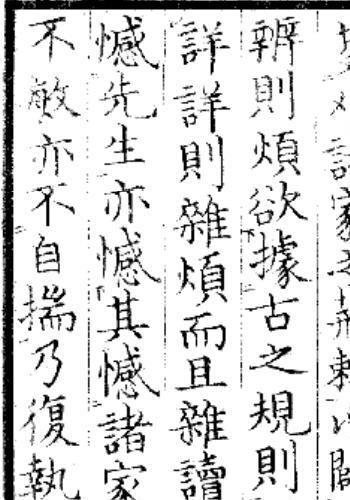 辨則煩欲據古之規則
詳詳則雜煩而且雜讀
憾先生亦憾其憾諸家
不敏亦不自揣乃復執